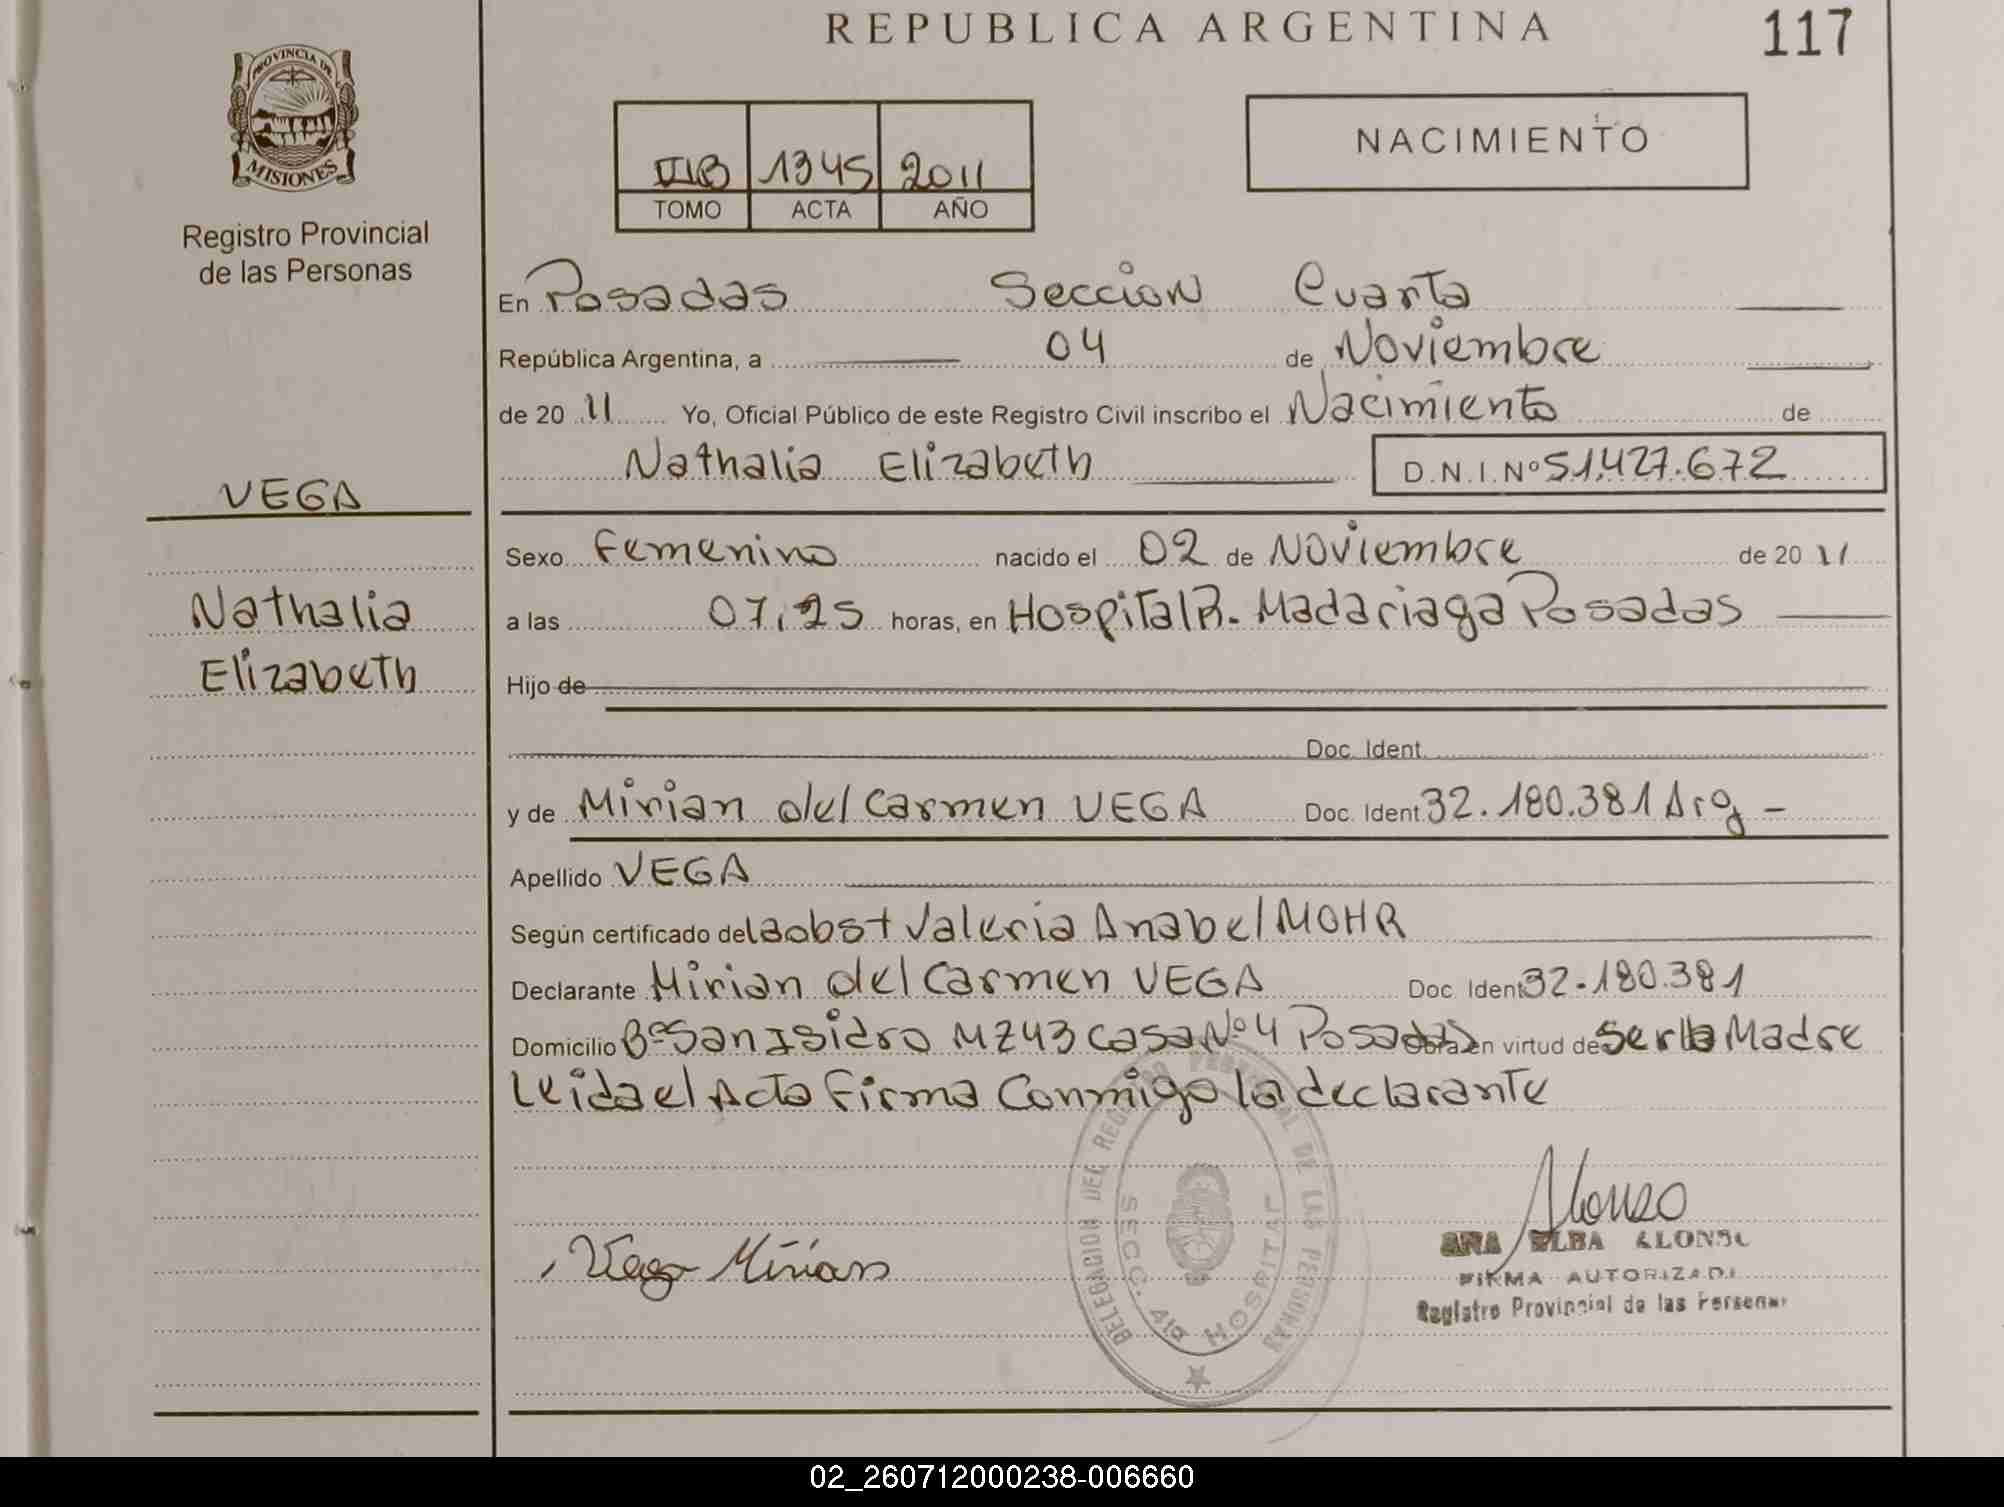 REPUBLICA ARGENTINA
117
PROVINCIA DE
MISIONES
Registro Provincial
de las Personas
NACIMIENTO
1345 2011
TOMO ACTA AÑO
En Posadas Seccion Cuarta
República Argentina, a 04 de Noviembre
de 20 11 Yo, Oficial Público de este Registro Civil inscribo el Nacimiento de
Nathalia Elizabeth D.N.I.Nº 51.427.672
VEGA
Nathalia
Elizabeth
Sexo Femenino nacido el 02 de Noviembre de 20 11
a las 07,25 horas, en Hospital R. Madariaga Posadas
Hijo de
Doc. Ident.
y de Mirian del Carmen VEGA Doc. Ident. 32.180.381 Arg -
Apellido VEGA
Según certificado de la obst Valeria Anabel MOHR
Declarante Mirian del Carmen VEGA Doc. Ident 32.180.381
Domicilio Bº San Isidro MZ 43 casa Nº 4 Posadas Obra en virtud de ser la Madre
Leida el Acta Firma Conmigo la declarante
DELEGACION DEL REGISTRO PROVINCIAL DE LAS PERSONAS
SECC. 4ta HOSPITAL
Vega Mirian
Alonso
ANA ELBA ALONSO
FIRMA AUTORIZADA
Registro Provincial de las Personas
02_260712000238-006660